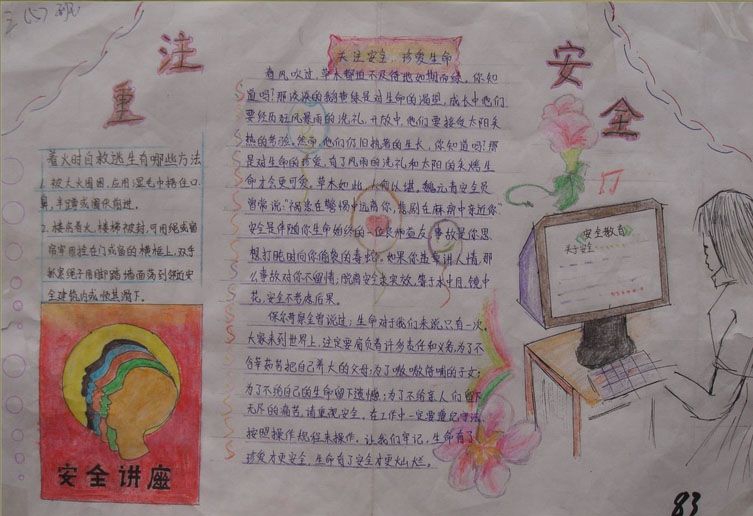 三(八)班
注
重
安
全
着火时自救逃生有哪些方法
1.被大火围困,应用湿毛巾捂住口
鼻,半蹲或匍伏前进。
2.楼房着火,楼梯被封,可用绳或窗
帘牢拴在门或窗的横框上,双手
抓紧绳子用脚蹬墙面荡到邻近安
全建筑内或顺其滑下。
安全讲座
关注安全,珍爱生命
春风吹过,草木都迫不及待地如期而绿。你知
道吗?那淡淡的鹅黄绿是对生命的渴望,成长中他们
要经历狂风暴雨的洗礼,开放中,他们要接受太阳炙
热的考验。然而,他们仍旧执着的生长,你知道吗?那
是对生命的珍爱,有了风雨的洗礼和太阳的炙烤生
命才会更可爱。草木如此,人何以堪。
曾常说:“祸患在警惕中远离你,悲剧在麻痹中亲近你”
安全是伴随你生命始终的一位良师益友,事故是你思
想打盹时向你偷袭的毒蛇。如果你违章讲人情,那
么事故对你不留情;脱离安全求实效,等于水中月,镜中
花,安全不考虑后果。
保尔·柯察金曾说过:生命对于我们来说,只有一次。
大家来到世界上,注定要肩负着许多责任和义务,为了不
辛茹苦把自己养大的父母;为了嗷嗷待哺的子女;
为了不给自己的生命留下遗憾;为了不给亲人们留下
无尽的痛苦,请重视安全,在工作中一定要遵纪守法,
按照操作规程来操作。让我们牢记,生命有了
珍爱才更安全,生命有了安全才更灿烂。
安全教育
关于安全
83